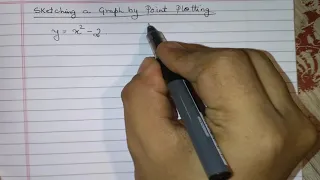 Sketching a Graph by Point Plotting
y = x² - 2